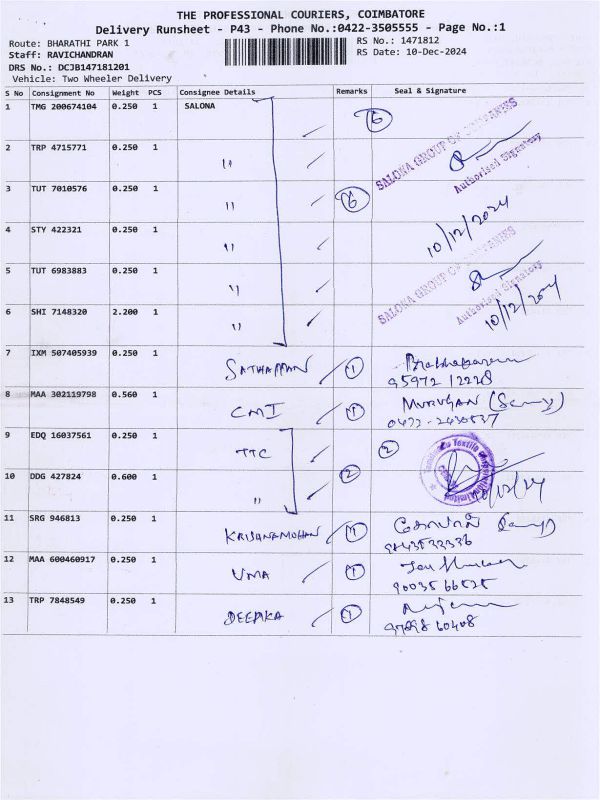 THE PROFESSIONAL COURIERS, COIMBATORE
Delivery Runsheet - P43 - Phone No.:0422-3505555 - Page No.:1
Route: BHARATHI PARK 1
RS No.: 1471812
Staff: RAVICHANDRAN
RS Date: 10-Dec-2024
DRS No.: DCJB147181201
Vehicle: Two Wheeler Delivery
S No Consignment No Weight PCS Consignee Details Remarks Seal & Signature
1 TMG 200674104 0.250 1 SALONA 6
SALONA GROUP OF COMPANIES
Authorised Signatory
2 TRP 4715771 0.250 1 "
3 TUT 7010576 0.250 1 " 6
10/12/2024
4 STY 422321 0.250 1 "
SALONA GROUP OF COMPANIES
Authorised Signatory
5 TUT 6983883 0.250 1 "
10/12/2024
6 SHI 7148320 2.200 1 "
7 IXM 507405939 0.250 1 SATHAPPAN 1
95972 12228
8 MAA 302119798 0.560 1 CMI 1 MURUGAN
9 EDQ 16037561 0.250 1 TTC 2
10 DDG 427824 0.600 1 " 2
10/12/24
11 SRG 946813 0.250 1 KRISHNAMOHAN 1
12 MAA 600460917 0.250 1 UMA 1
90035 66525
13 TRP 7848549 0.250 1 DEEPIKA 1
97898 60408